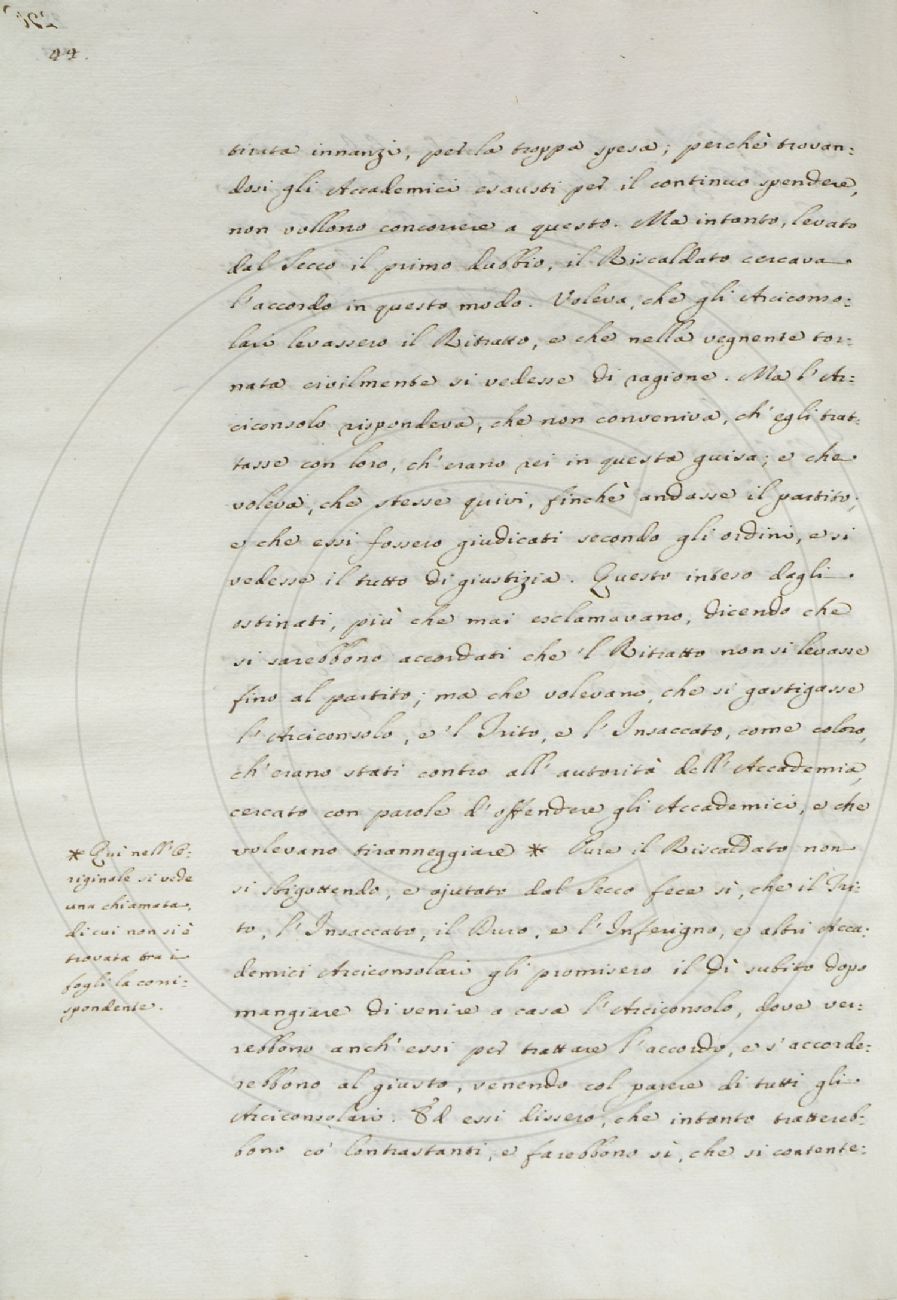 44.
tirata innanzi, per la troppa spesa; perchè trovan:
dosi gli Accademici esausti per il continuo spendere,
non vollono concorrere a questo. Ma intanto, levato
dal Secco il primo dubbio, il Riscaldato cercava
l'accordo in questo modo. Voleva, che gli Arciconso:
lari levassero il Ritratto, e che nella vegnente tor:
nata civilmente si vedesse di ragione. Ma l'Ar:
ciconsolo rispondeva, che non conveniva, ch'egli trat:
tasse con loro, ch'erano rei in questa guisa; e che
voleva, che stesse quivi, finchè andasse il partito;
e che essi fossero giudicati secondo gli ordini, e si
vedesse il tutto di giustizia. Questo inteso dagli
ostinati, più che mai esclamavano, dicendo che
si sarebbono accordati che 'l Ritratto non si levasse
fino al partito; ma che volevano, che si gastigasse
l'Arciconsolo, e 'l Trito, e l'Insaccato, come coloro,
ch'erano stati contro all'autorità dell'Accademia,
cercato con parole d'offendere gli Accademici, e che
volevano tiranneggiare * Pure il Riscaldato non
si sbigottendo, e ajutato dal Secco fece sì, che il Tri:
to, l'Insaccato, il Duro, e l'Inferigno, e altri Acca:
demici Arciconsolari gli promisero il dì subito dopo
mangiare di venire a casa l'Arciconsolo, dove ver:
rebbono anch'essi per trattare l'accordo, e s'accorde:
rebbono al giusto, venendo col parere di tutti gli
Arciconsolari. Ed essi dissero, che intanto trattereb:
bono co' Contrastanti, e farebbono sì, che si contente:
* Quì nell'O:
riginale si vede
una chiamata,
di cui non si è
trovata tra i
fogli la corri:
spondente.